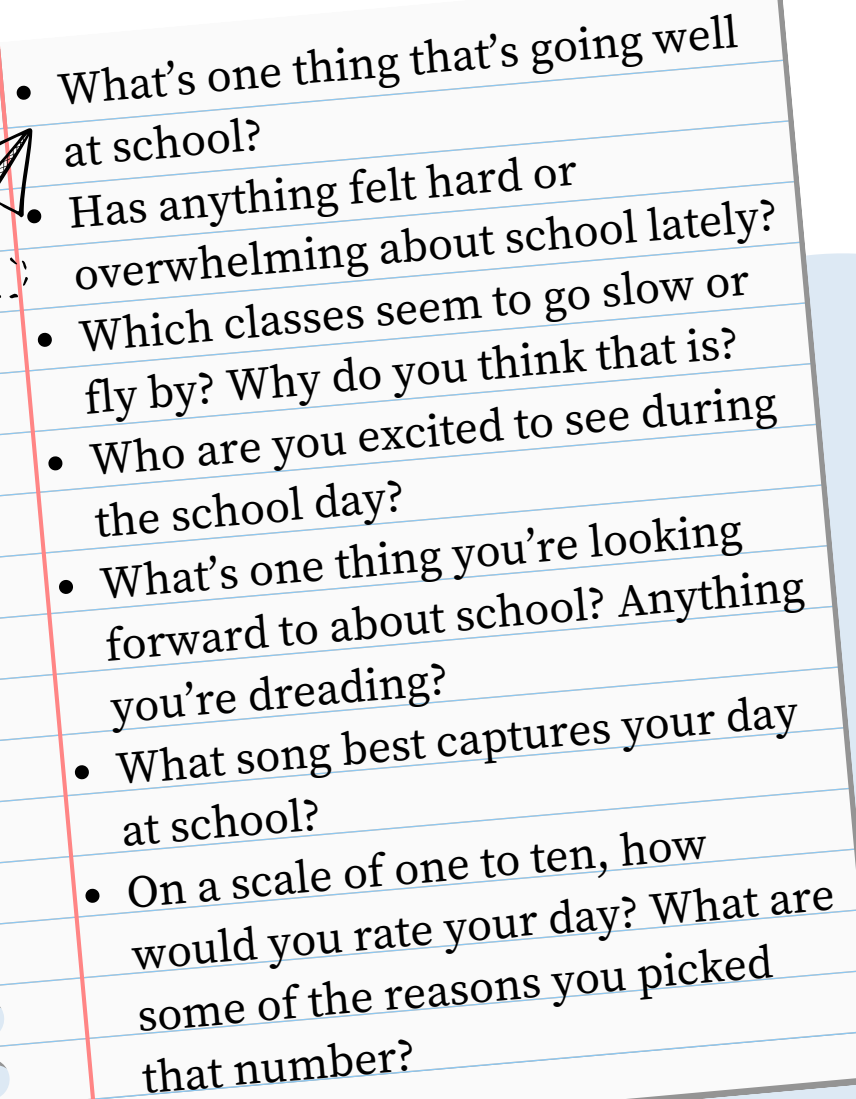 • What’s one thing that’s going well
at school?
• Has anything felt hard or
overwhelming about school lately?
• Which classes seem to go slow or
fly by? Why do you think that is?
• Who are you excited to see during
the school day?
• What’s one thing you’re looking
forward to about school? Anything
you’re dreading?
• What song best captures your day
at school?
• On a scale of one to ten, how
would you rate your day? What are
some of the reasons you picked
that number?